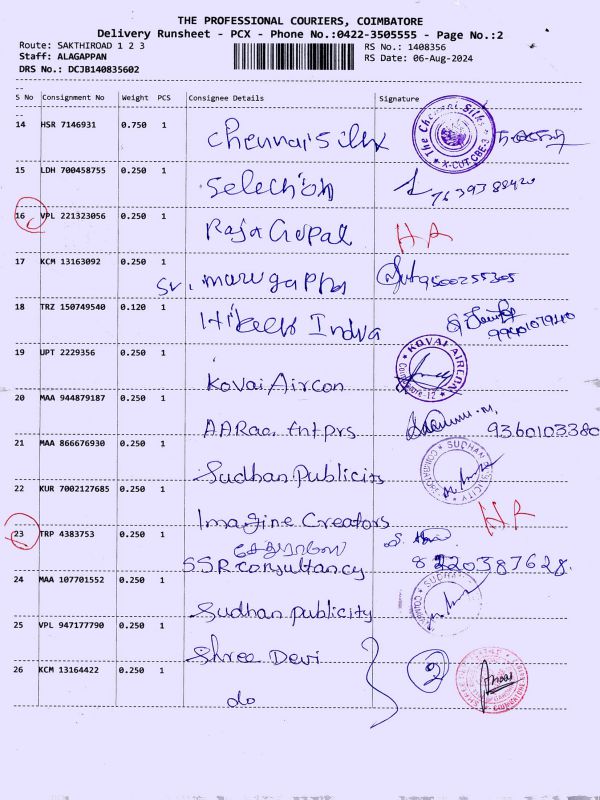 THE PROFESSIONAL COURIERS, COIMBATORE
Delivery Runsheet - PCX - Phone No.:0422-3505555 - Page No.:2
Route: SAKTHIROAD 1 2 3 RS No.: 1408356
Staff: ALAGAPPAN RS Date: 06-Aug-2024
DRS No.: DCJB140835602
S No Consignment No Weight PCS Consignee Details Signature
14 HSR 7146931 0.750 1 The Chennai Silk
Chennai Silk X-CUT-CBE-3
15 LDH 700458755 0.250 1
Selection 7639388420
16 VPL 221323056 0.250 1
Raja Gopal
17 KCM 13163092 0.250 1
Sri. murugappa 9500255305
18 TRZ 150749540 0.120 1
Indya
19 UPT 2229356 0.250 1 KOVAI AIRCON
Kovai Aircon Coimbatore-12
20 MAA 944879187 0.250 1
9360103380
21 MAA 866676930 0.250 1 SUDHAN PUBLICITY
Sudhan Publicity COIMBATORE
22 KUR 7002127685 0.250 1
Imagine Creators
23 TRP 4383753 0.250 1
SSR consultancy 8220387628
24 MAA 107701552 0.250 1 SUDHAN
Sudhan publicity
25 VPL 947177790 0.250 1
Shree Devi 2
26 KCM 13164422 0.250 1
do